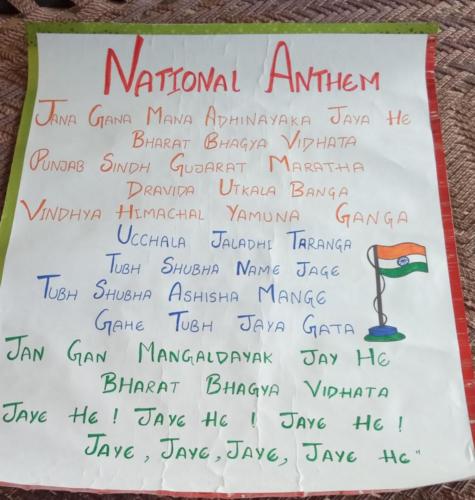 NATIONAL ANTHEM
JANA GANA MANA ADHINAYAKA JAYA HE
BHARAT BHAGYA VIDHATA
PUNJAB SINDH GUJARAT MARATHA
DRAVIDA UTKALA BANGA
VINDHYA HIMACHAL YAMUNA GANGA
UCCHALA JALADHI TARANGA
TUBH SHUBHA NAME JAGE
TUBH SHUBHA ASHISHA MANGE
GAHE TUBH JAYA GATA
JAN GAN MANGALDAYAK JAY HE
BHARAT BHAGYA VIDHATA
JAYE HE ! JAYE HE ! JAYE HE !
JAYE, JAYE, JAYE, JAYE HE"